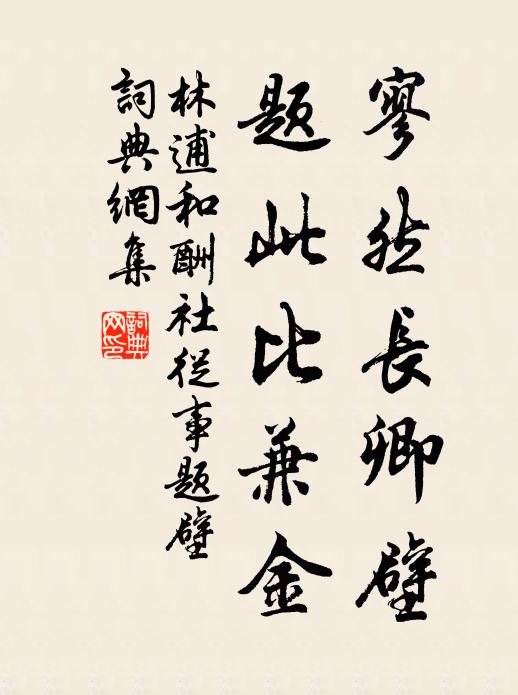 寥然長卿壁
題此比兼金
林逋和酬社從事題壁
詞典網集
詞典
网印